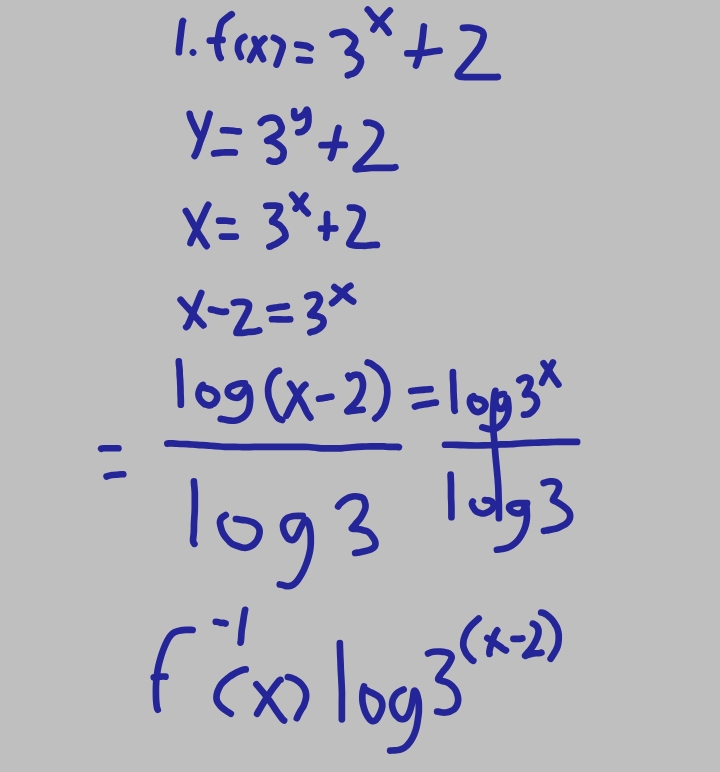 1. f(x) = 3^x + 2
y = 3^y + 2
x = 3^x + 2
x - 2 = 3^x
= log(x - 2) / log 3 = log 3^x / log 3
f^-1 (x) log 3^(x - 2)